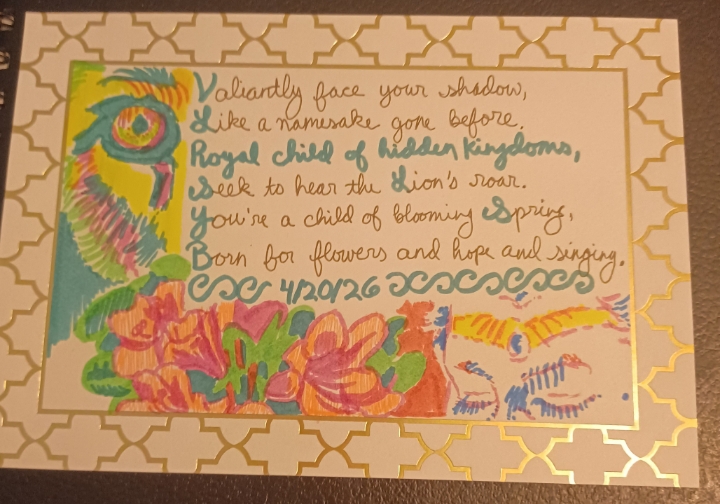 Valiantly face your shadow,
Like a namesake gone before.
Royal child of hidden kingdoms,
Seek to hear the Lion's roar.
You're a child of blooming Spring,
Born for flowers and hope and singing.
4/20/26